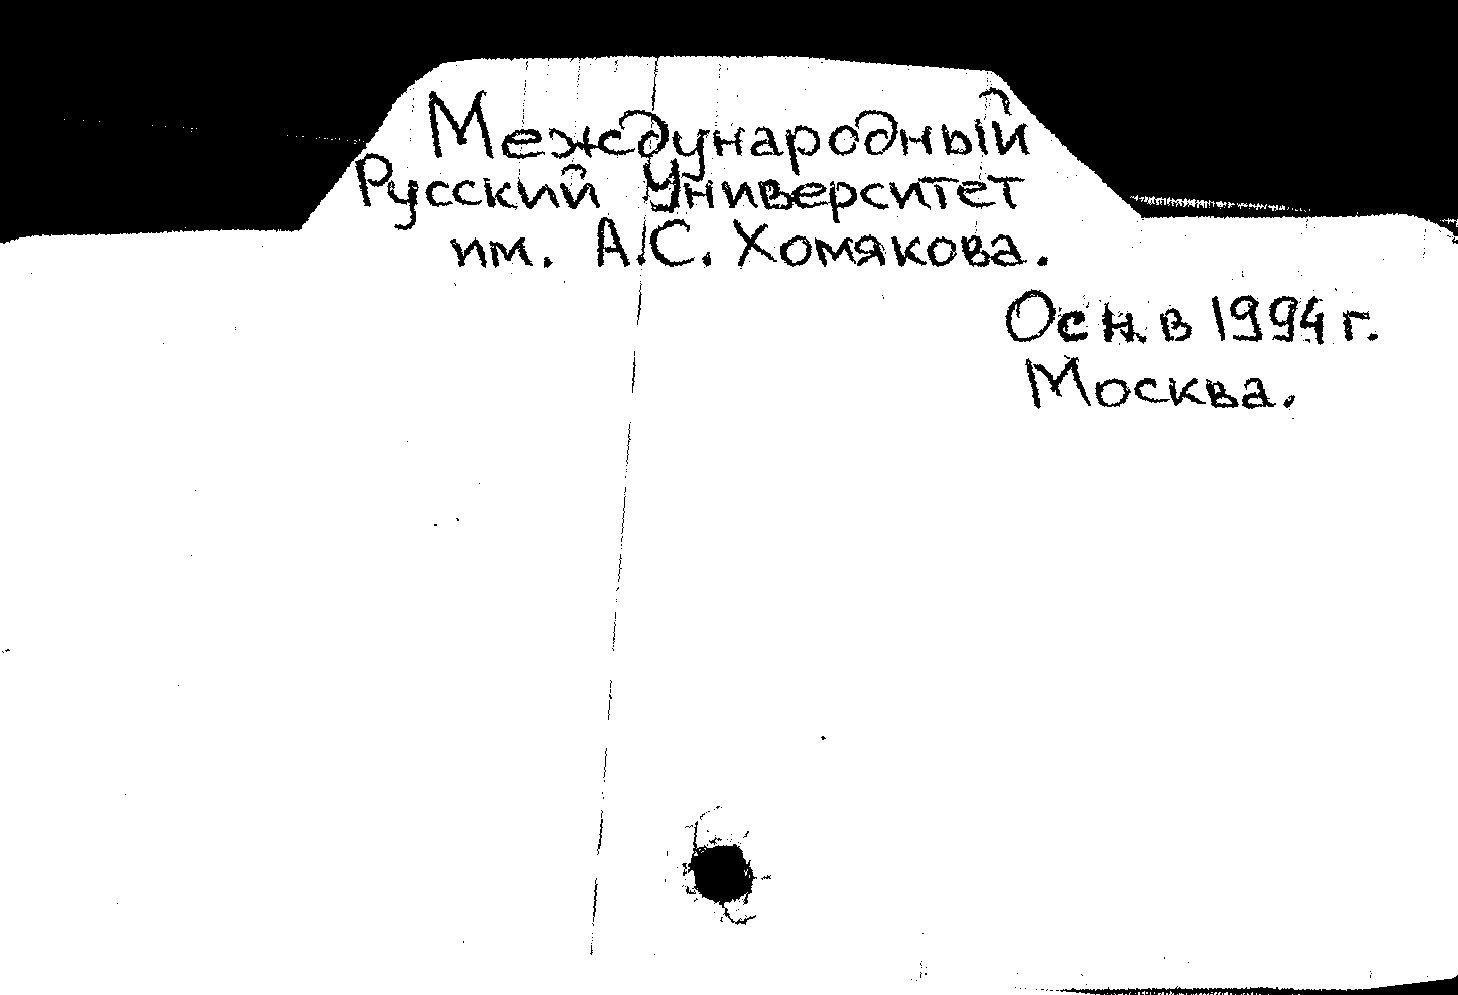 Международный
Русский Университет
им. А.С. Хомякова.
Осн. в 1994 г.
Москва.